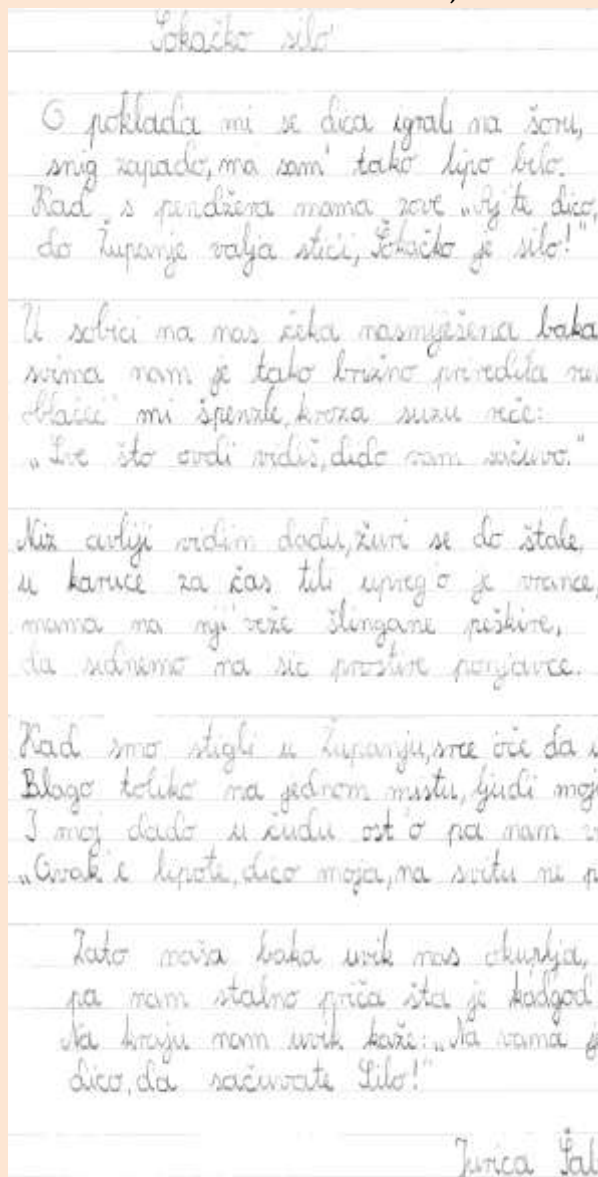 Šokačko silo
O poklada mi se dica igrali na šoru,
snig zapado, ma sam' tako lipo bilo.
Kad s pendžera mama zove „Aj'te dico,
do Županje valja stići, Šokačko je silo!"
U sobici na nas čeka nasmiješena baka
svima nam je tako brižno priredila
oblačeć mi špenzle, kroza suzu reče:
„Sve što ovdi vidiš, dido vam sačuvo."
Niz avliji vidim dadu, žuri se do štale,
u karuce za čas tili upreg'o je vrance,
mama na nji' veže šlingane peškire,
da sidnemo na sic prostire ponjavce.
Kad smo stigli u Županju, srce oće da
Blago toliko na jednom mistu, ljudi moji
I moj dado u čudu ost'o pa nam
„Ovak'e lipote, dico moja, na svitu ne
Zato naša baka uvik nas okuplja,
pa nam stalno priča šta je kadgod
Na kraju nam uvik kaže: „Na vama je
dico, da sačuvate Silo!"
Jurica